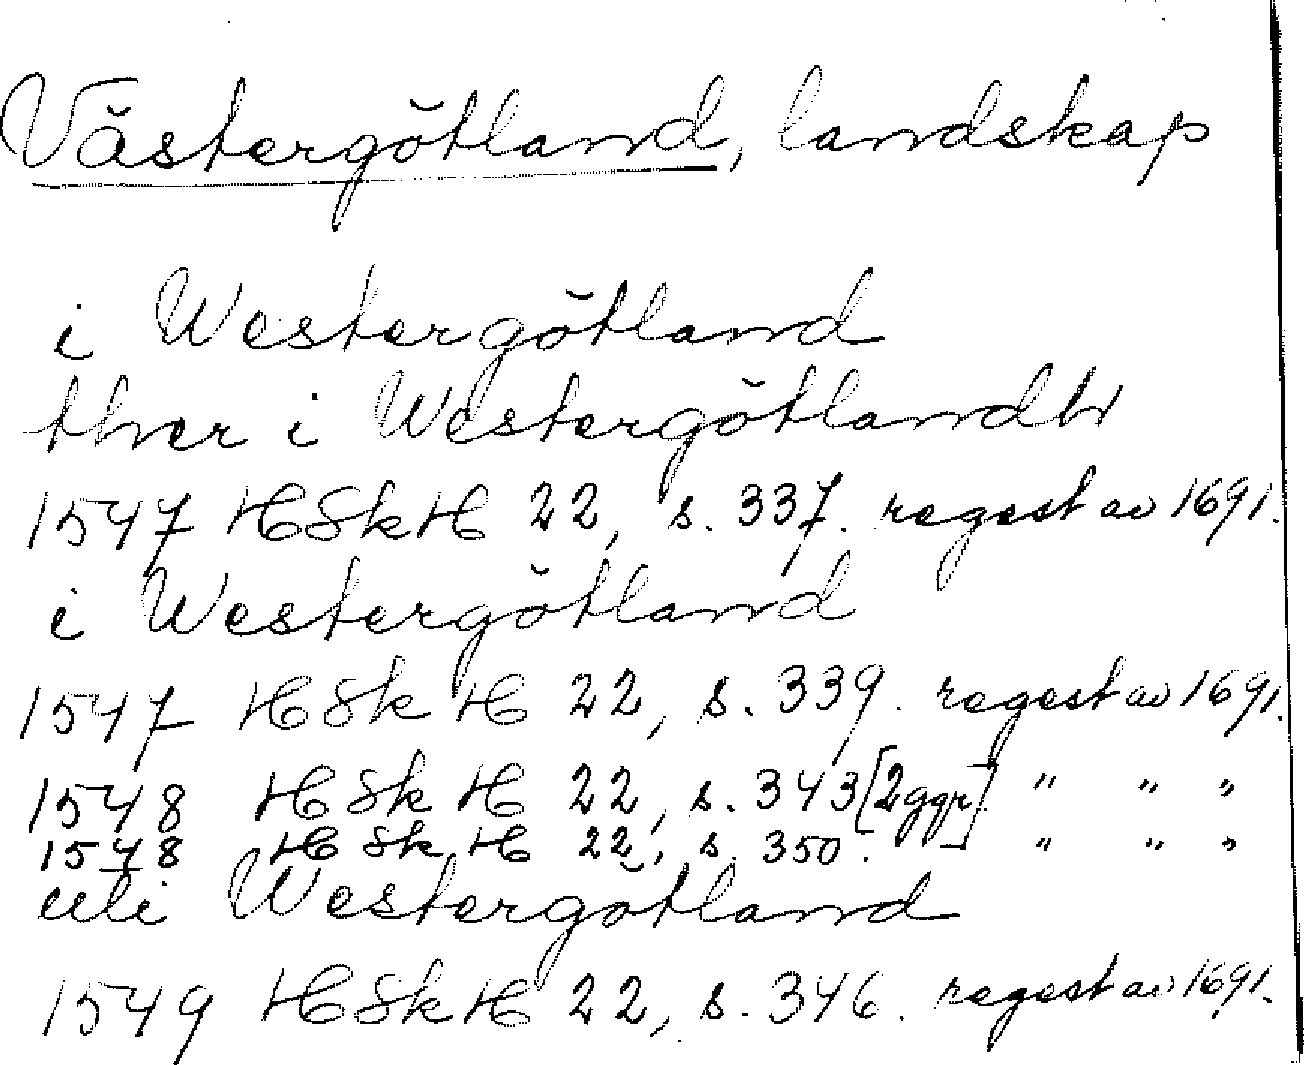 Västergötland, landskap
i Westergötland
ther i Westergötlandh
1547 HSkH 22, s. 337. regest av 1691.
i Westergötland
1547 HSkH 22, s. 339. regest av 1691.
1548 HSkH 22, s. 343 [2 ggr] " " "
1548 HSkH 22, s. 350. " " "
uti Westergötland
1549 HSkH 22, s. 346. regest av 1691.